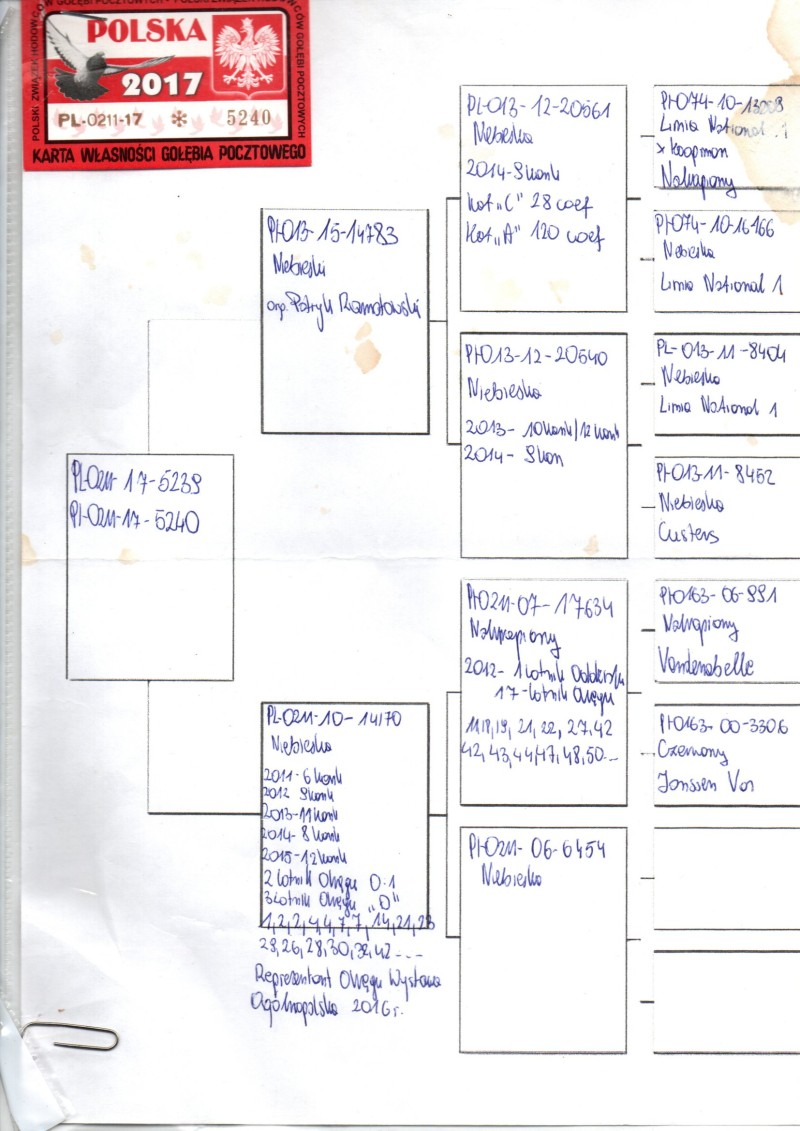 POLSKI ZWIĄZEK HODOWCÓW GOŁĘBI POCZTOWYCH
POLSKA
2017
PL-0211-17 * 5240
KARTA WŁASNOŚCI GOŁĘBIA POCZTOWEGO
PL-0211-17-5239
PL-0211-17-5240
PL-013-15-14783
Niebieski
oryg. Patryk
PL-0211-10-14170
Niebieska
2011-6 konk
2012 9konk
2013-11 konk
2014-8 konk
2015-12 konk
2 lotnik Okręgu
3 lotnik Okręgu "D"
1,2,2,4,4,7,7, 14,21,23
28,30
Reprezentant Okręgu Wystawa
Ogólnopolska 2016 r.
PL-013-12-20561
Niebieska
2014-9 konk
Kat „C" 28 coef
Kat „A" 120 coef
PL-013-12-20540
Niebieska
2013-10 konk/12 konk
2014- 9 kon
PL-0211-07-17634
Nakrapiony
2012- 1 lotnik
17-lotnik Okręgu
21, 22, 27, 42
42, 43, 44, 47, 48, 50...
PL-0211-06-6454
Niebieska
PL-074-10-
Linia National 1
x Koopman
Nakrapiony
PL-074-10-16166
Niebieska
Linia National 1
PL-013-11-8404
Niebieska
Linia National 1
PL-013-11-8452
Niebieska
Custers
PL-0163-06-991
Nakrapiony
Vandenabelle
PL-0163-00-3306
Czerwony
Janssen Vos